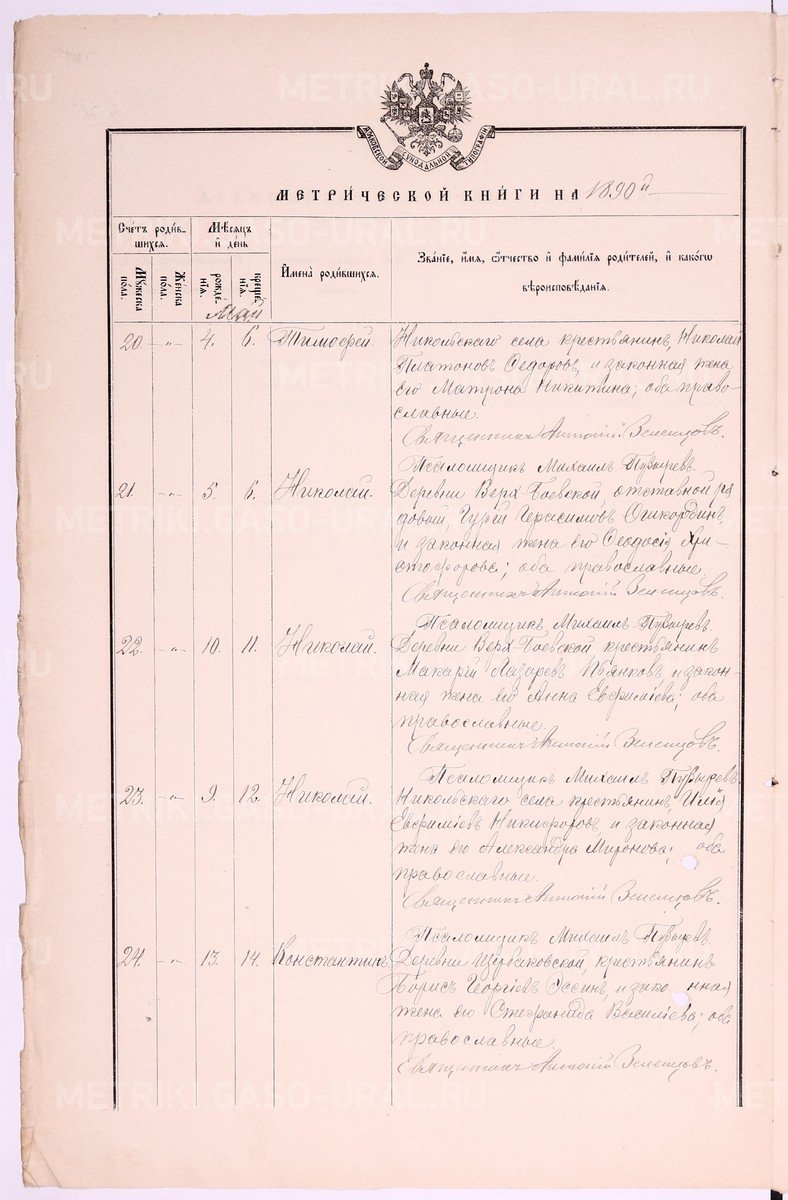 METRIKI.GASO-URAL.RU
МОСКОВСКОЙ СѴНОДАЛЬНОЙ ТИПОГРАФІИ
МЕТРИ́ЧЕСКОЙ КНИ́ГИ НА 1890 й
Сче́тъ роди́в-
шихся.
Му́жеска
по́ла.
Же́нска
по́ла.
Мѣ́сяцъ
и҆ де́нь
рожде́-
нїѧ.
креще́-
нїѧ.
И҆мена̀ роди́вшихся.
Зва́нїе, и҆́мя, ѻ҆́тчество и҆ фами́лїя роди́телей, и҆ како́гѡ
вѣроисповѣ́данїѧ.
Май
20. —"— 4. 6. Тимофей. Никольскаго села крестьянинъ, Николай
Платоновъ Ѳедоровъ, и законная жена
его Матрона Никитина; оба право-
славные.
Священникъ Антоній
Псаломщикъ Михаилъ Пузыревъ.
21. —"— 5. 6. Николай. Деревни Верх-Боевской, отставной ря
довый, Гурій Герасимовъ
и законная жена его Ѳеодосія Хри-
стофорова; оба православные
Священникъ Антоній
Псаломщикъ Михаилъ Пузыревъ.
22. —"— 10. 11. Николай. Деревни Верх-Боевской крестьянинъ
Макарій Лазаревъ Пьянковъ, и закон-
ная жена его Анна Евфиміева; оба
православные.
Священникъ Антоній
Псаломщикъ Михаилъ Пузыревъ.
23. —"— 9. 12. Николай. Никольскаго села крестьянинъ, Илія
Евфиміевъ Никифоровъ, и законная
жена его Александра Миронова; оба
православные.
Священникъ Антоній
Псаломщикъ Михаилъ Пузыревъ.
24. —"— 13. 14. Константинъ. Деревни Щербаковской, крестьянинъ
Борисъ Георгіевъ и законная
жена его Стефанида Василіева; оба
православные.
Священникъ Антоній